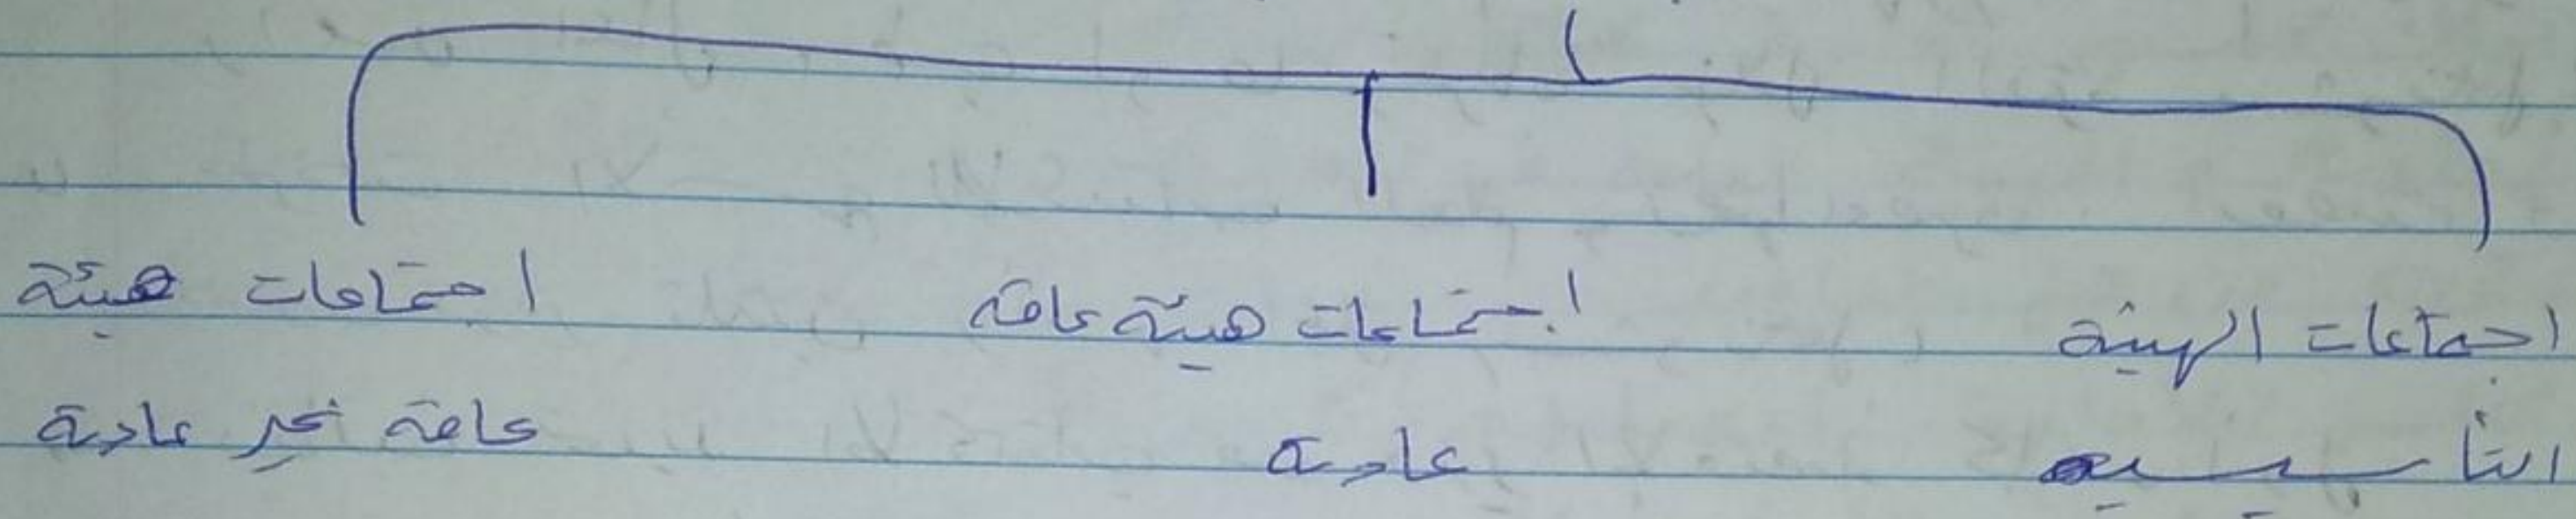 اجتماعات الهيئة
التأسيسيه
اجتماعات هيئة عامة
عادية
اجتماعات هيئة
عامة غير عادية